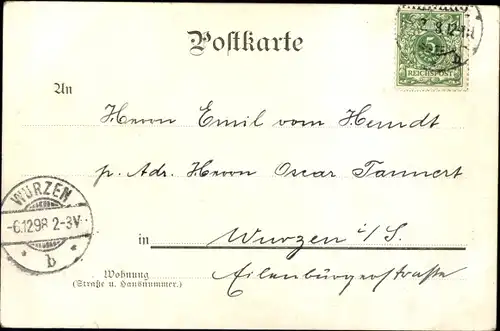 Postkarte
5
REICHSPOST
An
Herrn Emil vom Hemdt
p. Adr. Herrn Oscar Tannert
WURZEN
-6.12.98 2-3V.
* b *
in Wurzen i/S.
Wohnung
(Straße u. Hausnummer.)
Eilenbürgerstraße